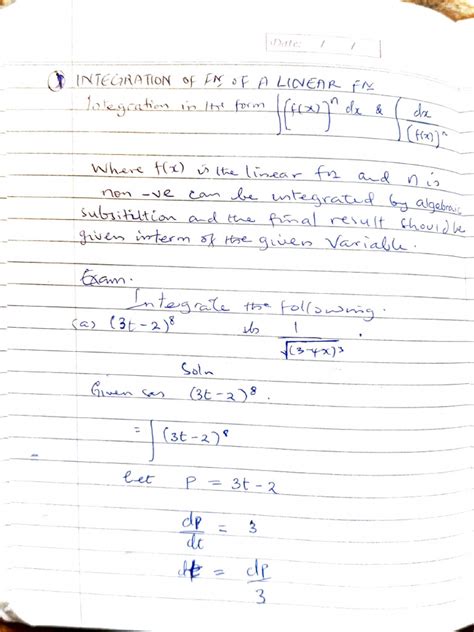 Date: / /
① INTEGRATION OF FN OF A LINEAR FN
Integration in the form ∫[f(x)]ⁿ dx & ∫ dx/(f(x))ⁿ
Where f(x) is the linear fn and n is
non -ve can be integrated by algebraic
substitution and the final result should be
given interm of the given Variable.
Exam.
Integrate the following.
(a) (3t-2)⁸ (b) 1/√(3-4x)³.
Soln
Given (a) (3t-2)⁸.
= ∫(3t-2)⁸
let P = 3t-2
dp/dt = 3
dt = dp/3